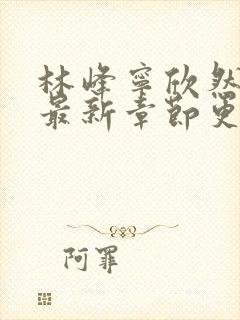 林峰寧欣然
最新章節更
阿罪